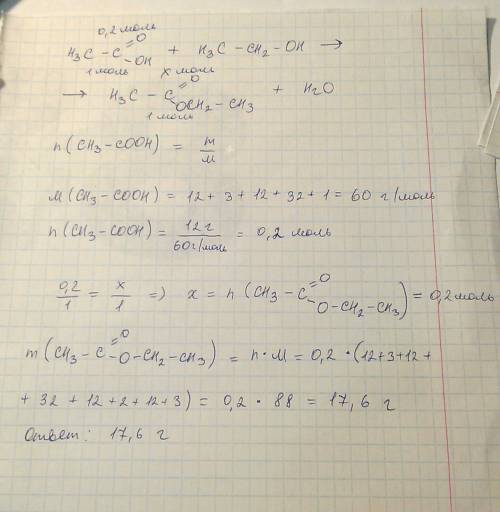 0,2 моль
O
H₃C – C – OH + H₃C – CH₂ – OH →
1 моль x моль
O
→ H₃C – C – OCH₂ – CH₃ + H₂O
1 моль
n (CH₃ – COOH) = m/M
M (CH₃ – COOH) = 12 + 3 + 12 + 32 + 1 = 60 г/моль
n (CH₃ – COOH) = 12 г / 60 г/моль = 0,2 моль
0,2/1 = x/1 => x = n (CH₃ – C =O – O – CH₂ – CH₃) = 0,2 моль
m (CH₃ – C =O – O – CH₂ – CH₃) = n · M = 0,2 · (12+3+12+
+ 32 + 12 + 2 + 12 + 3) = 0,2 · 88 = 17,6 г
Ответ: 17,6 г